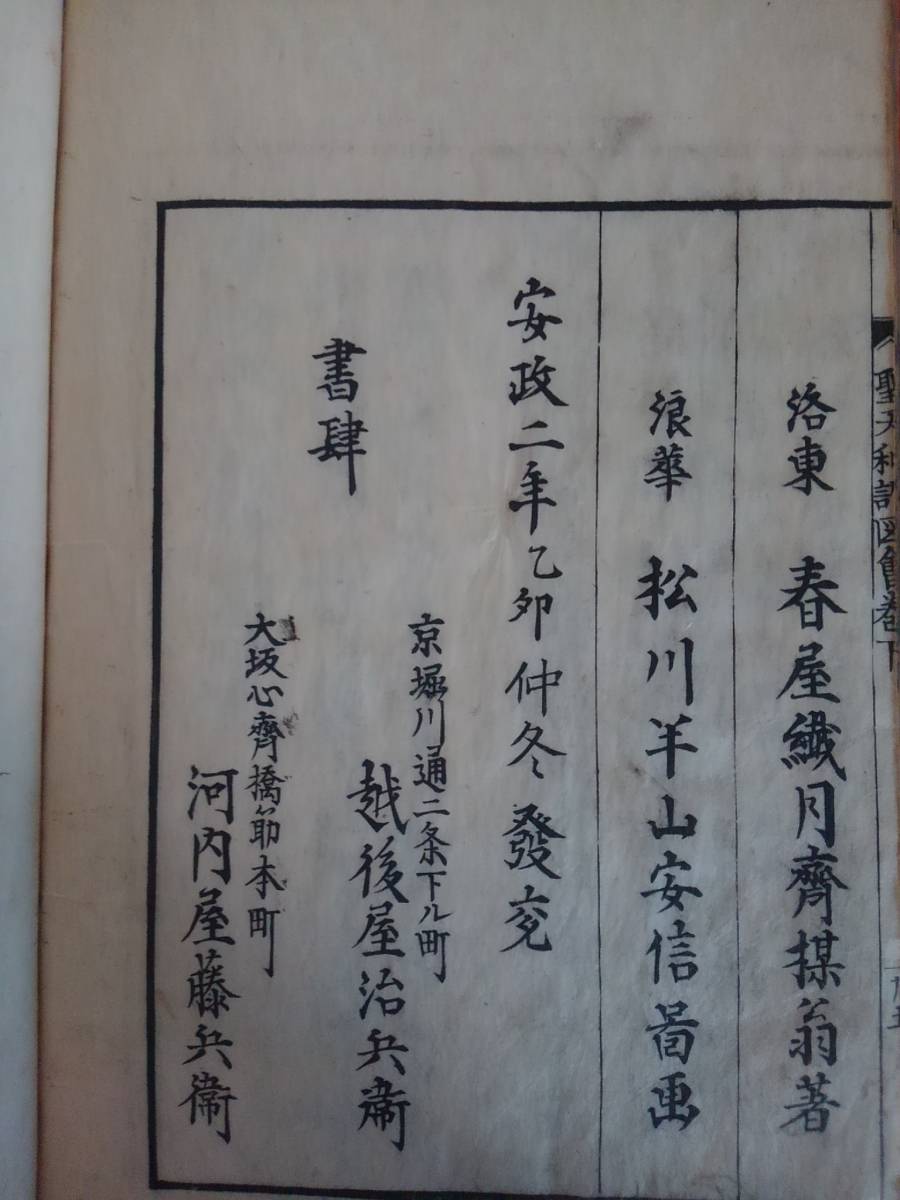 聖天和讃図會巻下
洛東 春屋繊月齊楳翁著
浪華 松川半山安信啚画
安政二年乙卯仲冬發兌
京堀川通二条下ル町
越後屋治兵衞
書肆
大坂心齊橋筋本町
河内屋藤兵衞